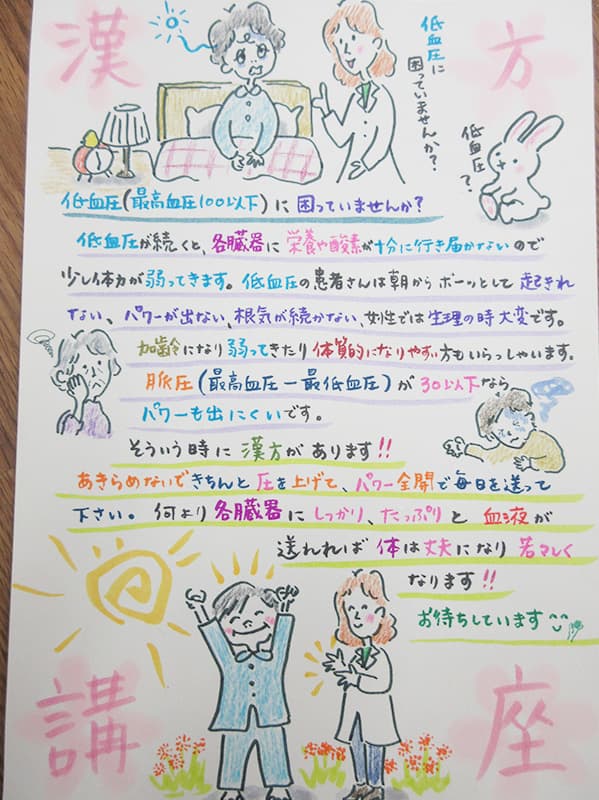 漢方
低血圧に
困っていませんか?
低血圧?
低血圧(最高血圧100以下)に困っていませんか?
低血圧が続くと、各臓器に栄養や酸素が十分に行き届かないので
少し体力が弱ってきます。低血圧の患者さんは朝からボーッとして起きれ
ない、パワーが出ない、根気が続かない、女性では生理の時大変です。
加齢になり弱ってきたり体質的になりやすい方もいらっしゃいます。
脈圧(最高血圧ー最低血圧)が30以下なら
パワーも出にくいです。
そういう時に漢方があります!!
あきらめないできちんと圧を上げて、パワー全開で毎日を送って
下さい。何より各臓器にしっかり、たっぷりと血液が
送れれば体は丈夫になり若々しく
なります!!
お待ちしています
講座